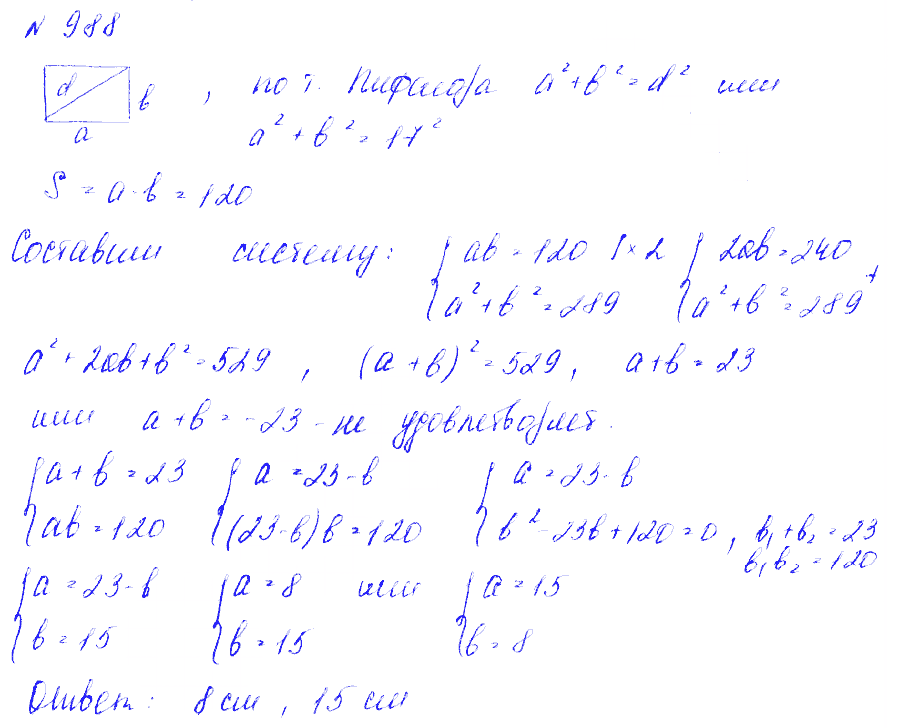 N 988
d
b
a
, по т. Пифагора a²+b²=d² или
a²+b²=17²
S = a·b = 120
Составим систему: { ab=120 |×2 { 2ab=240 ,
{ a²+b²=289 { a²+b²=289 +
a²+2ab+b²=529 , (a+b)²=529, a+b=23
или a+b=-23 - не удовлетворяет.
{ a+b=23 { a=23-b { a=23-b
{ ab=120 { (23-b)b=120 { b²-23b+120=0 , b₁+b₂=23
b₁b₂=120
{ a=23-b { a=8 или { a=15
{ b=15 { b=15 { b=8
Ответ: 8 см , 15 см